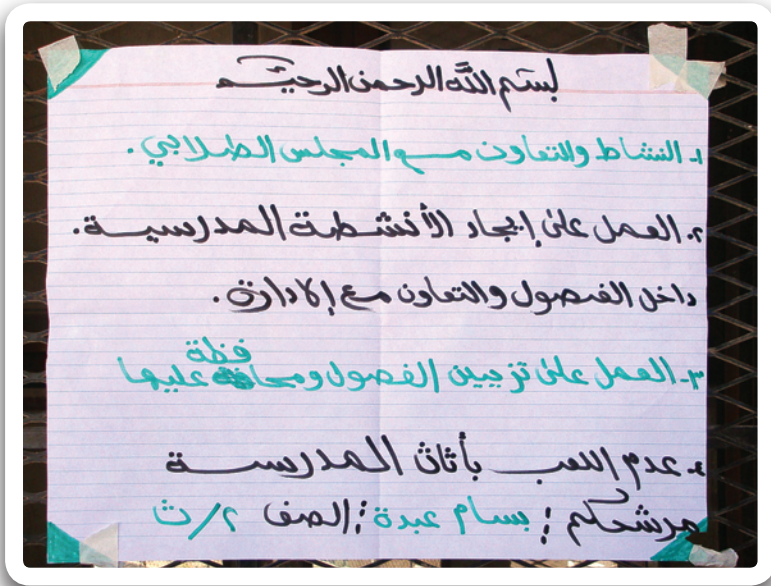 بسم الله الرحمن الرحيم
١- النشاط والتعاون مع المجلس الطلابي.
٢- العمل على إيجاد الأنشطة المدرسية.
داخل الفصول والتعاون مع الإدارة.
٣- العمل على تزيين الفصول ومحافظة عليها
٤- عدم اللعب بأثاث المدرسة
مرشحكم: بسام عبدة: الصف ٢/ث